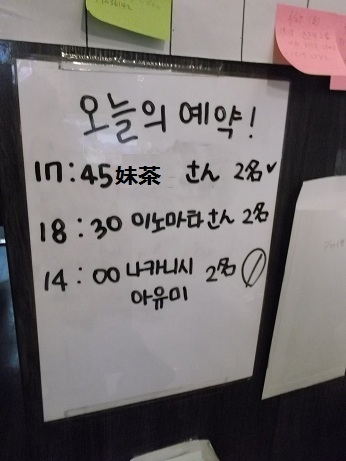 오늘의 예약!
17:45 妹茶 さん 2名✓
18:30 이노마타さん 2名
14:00 나카니시 2名
아유미